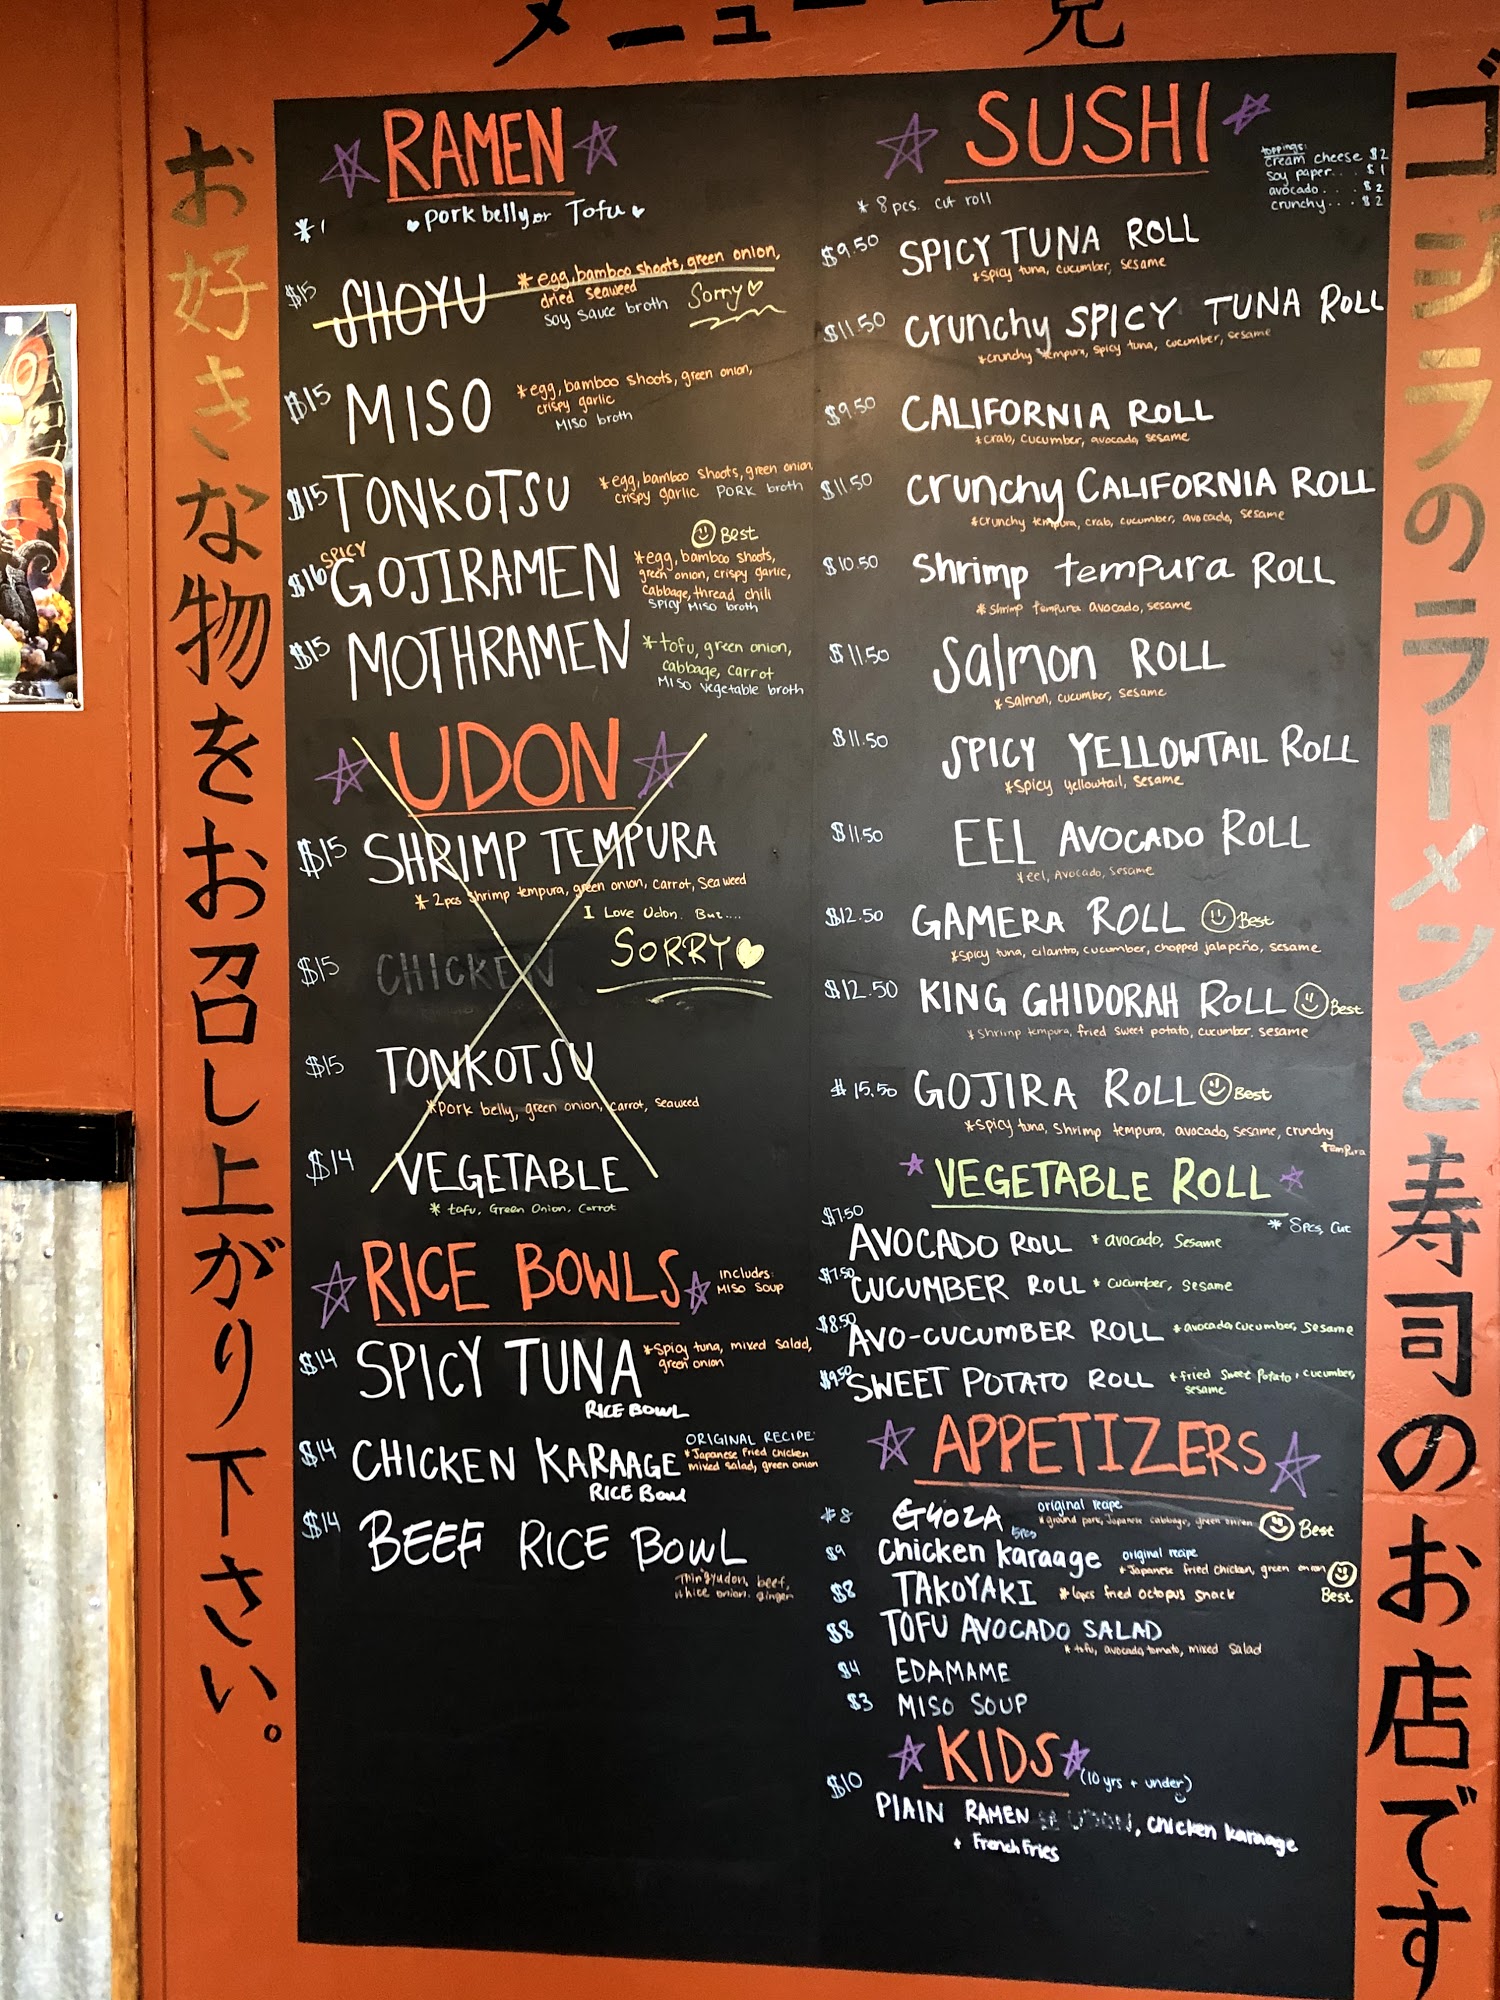 メニュー一覧
お好きな物をお召し上がり下さい。
RAMEN
*1
pork belly or Tofu
$15 SHOYU *egg, bamboo shoots, green onion,
dried seaweed
soy sauce broth Sorry
$15 MISO *egg, bamboo shoots, green onion,
crispy garlic
MISO broth
$15 TONKOTSU *egg, bamboo shoots, green onion,
crispy garlic PORK broth
Best
$16 SPICY GOJIRAMEN *egg, bamboo shoots,
green onion, crispy garlic,
cabbage, thread chili
SPICY MISO broth
$15 MOTHRAMEN *tofu, green onion,
cabbage, carrot
MISO vegetable broth
UDON
$15 SHRIMP TEMPURA
*2pcs shrimp tempura, green onion, carrot, seaweed
I Love Udon. But....
SORRY
$15 CHICKEN
$15 TONKOTSU
*pork belly, green onion, carrot, seaweed
$14 VEGETABLE
*tofu, Green Onion, carrot
RICE BOWLS includes:
MISO SOUP
$14 SPICY TUNA *Spicy tuna, mixed salad,
green onion
RICE BOWL
$14 CHICKEN KARAAGE ORIGINAL RECIPE
*Japanese Fried chicken
mixed salad, green onion
RICE Bowl
$14 BEEF RICE BOWL
beef,
onion. ginger
SUSHI
toppings:
cream cheese $2
soy paper... $1
avocado.... $2
crunchy... $2
* 8 pcs. cut roll
$9.50 SPICY TUNA ROLL
*spicy tuna, cucumber, sesame
$11.50 crunchy SPICY TUNA ROLL
*crunchy tempura, spicy tuna, cucumber, sesame
$9.50 CALIFORNIA ROLL
*crab, cucumber, avocado, sesame
$11.50 crunchy CALIFORNIA ROLL
*crunchy tempura, crab, cucumber, avocado, sesame
$10.50 shrimp tempura ROLL
*shrimp tempura avocado, sesame
$11.50 Salmon ROLL
*salmon, cucumber, sesame
$11.50 SPICY YELLOWTAIL ROLL
*spicy yellowtail, sesame
$11.50 EEL AVOCADO ROLL
*eel, Avocado, sesame
$12.50 GAMERA ROLL Best
*spicy tuna, cilantro, cucumber, chopped jalapeño, sesame
$12.50 KING GHIDORAH ROLL Best
*shrimp tempura, fried sweet potato, cucumber, sesame
$15.50 GOJIRA ROLL Best
*spicy tuna, shrimp tempura, avocado, sesame, crunchy
tempura
VEGETABLE ROLL
* 8pcs, cut
$7.50 AVOCADO ROLL * avocado, sesame
$7.50 CUCUMBER ROLL * cucumber, sesame
$8.50 AVO-CUCUMBER ROLL *avocado, cucumber, sesame
$9.50 SWEET POTATO ROLL *fried sweet potato, cucumber,
sesame
APPETIZERS
$8 GYOZA original recipe
5pcs *ground pork, Japanese cabbage, green onion Best
$9 chicken karaage original recipe
*Japanese fried chicken, green onion
$8 TAKOYAKI *6pcs fried octopus snack Best
$8 TOFU AVOCADO SALAD
*tofu, avocado, tomato, mixed salad
$4 EDAMAME
$3 MISO SOUP
KIDS (10 yrs + under)
$10 PLAIN RAMEN or UDON, chicken karaage
+ French Fries
ゴジラのラーメンと寿司のお店です